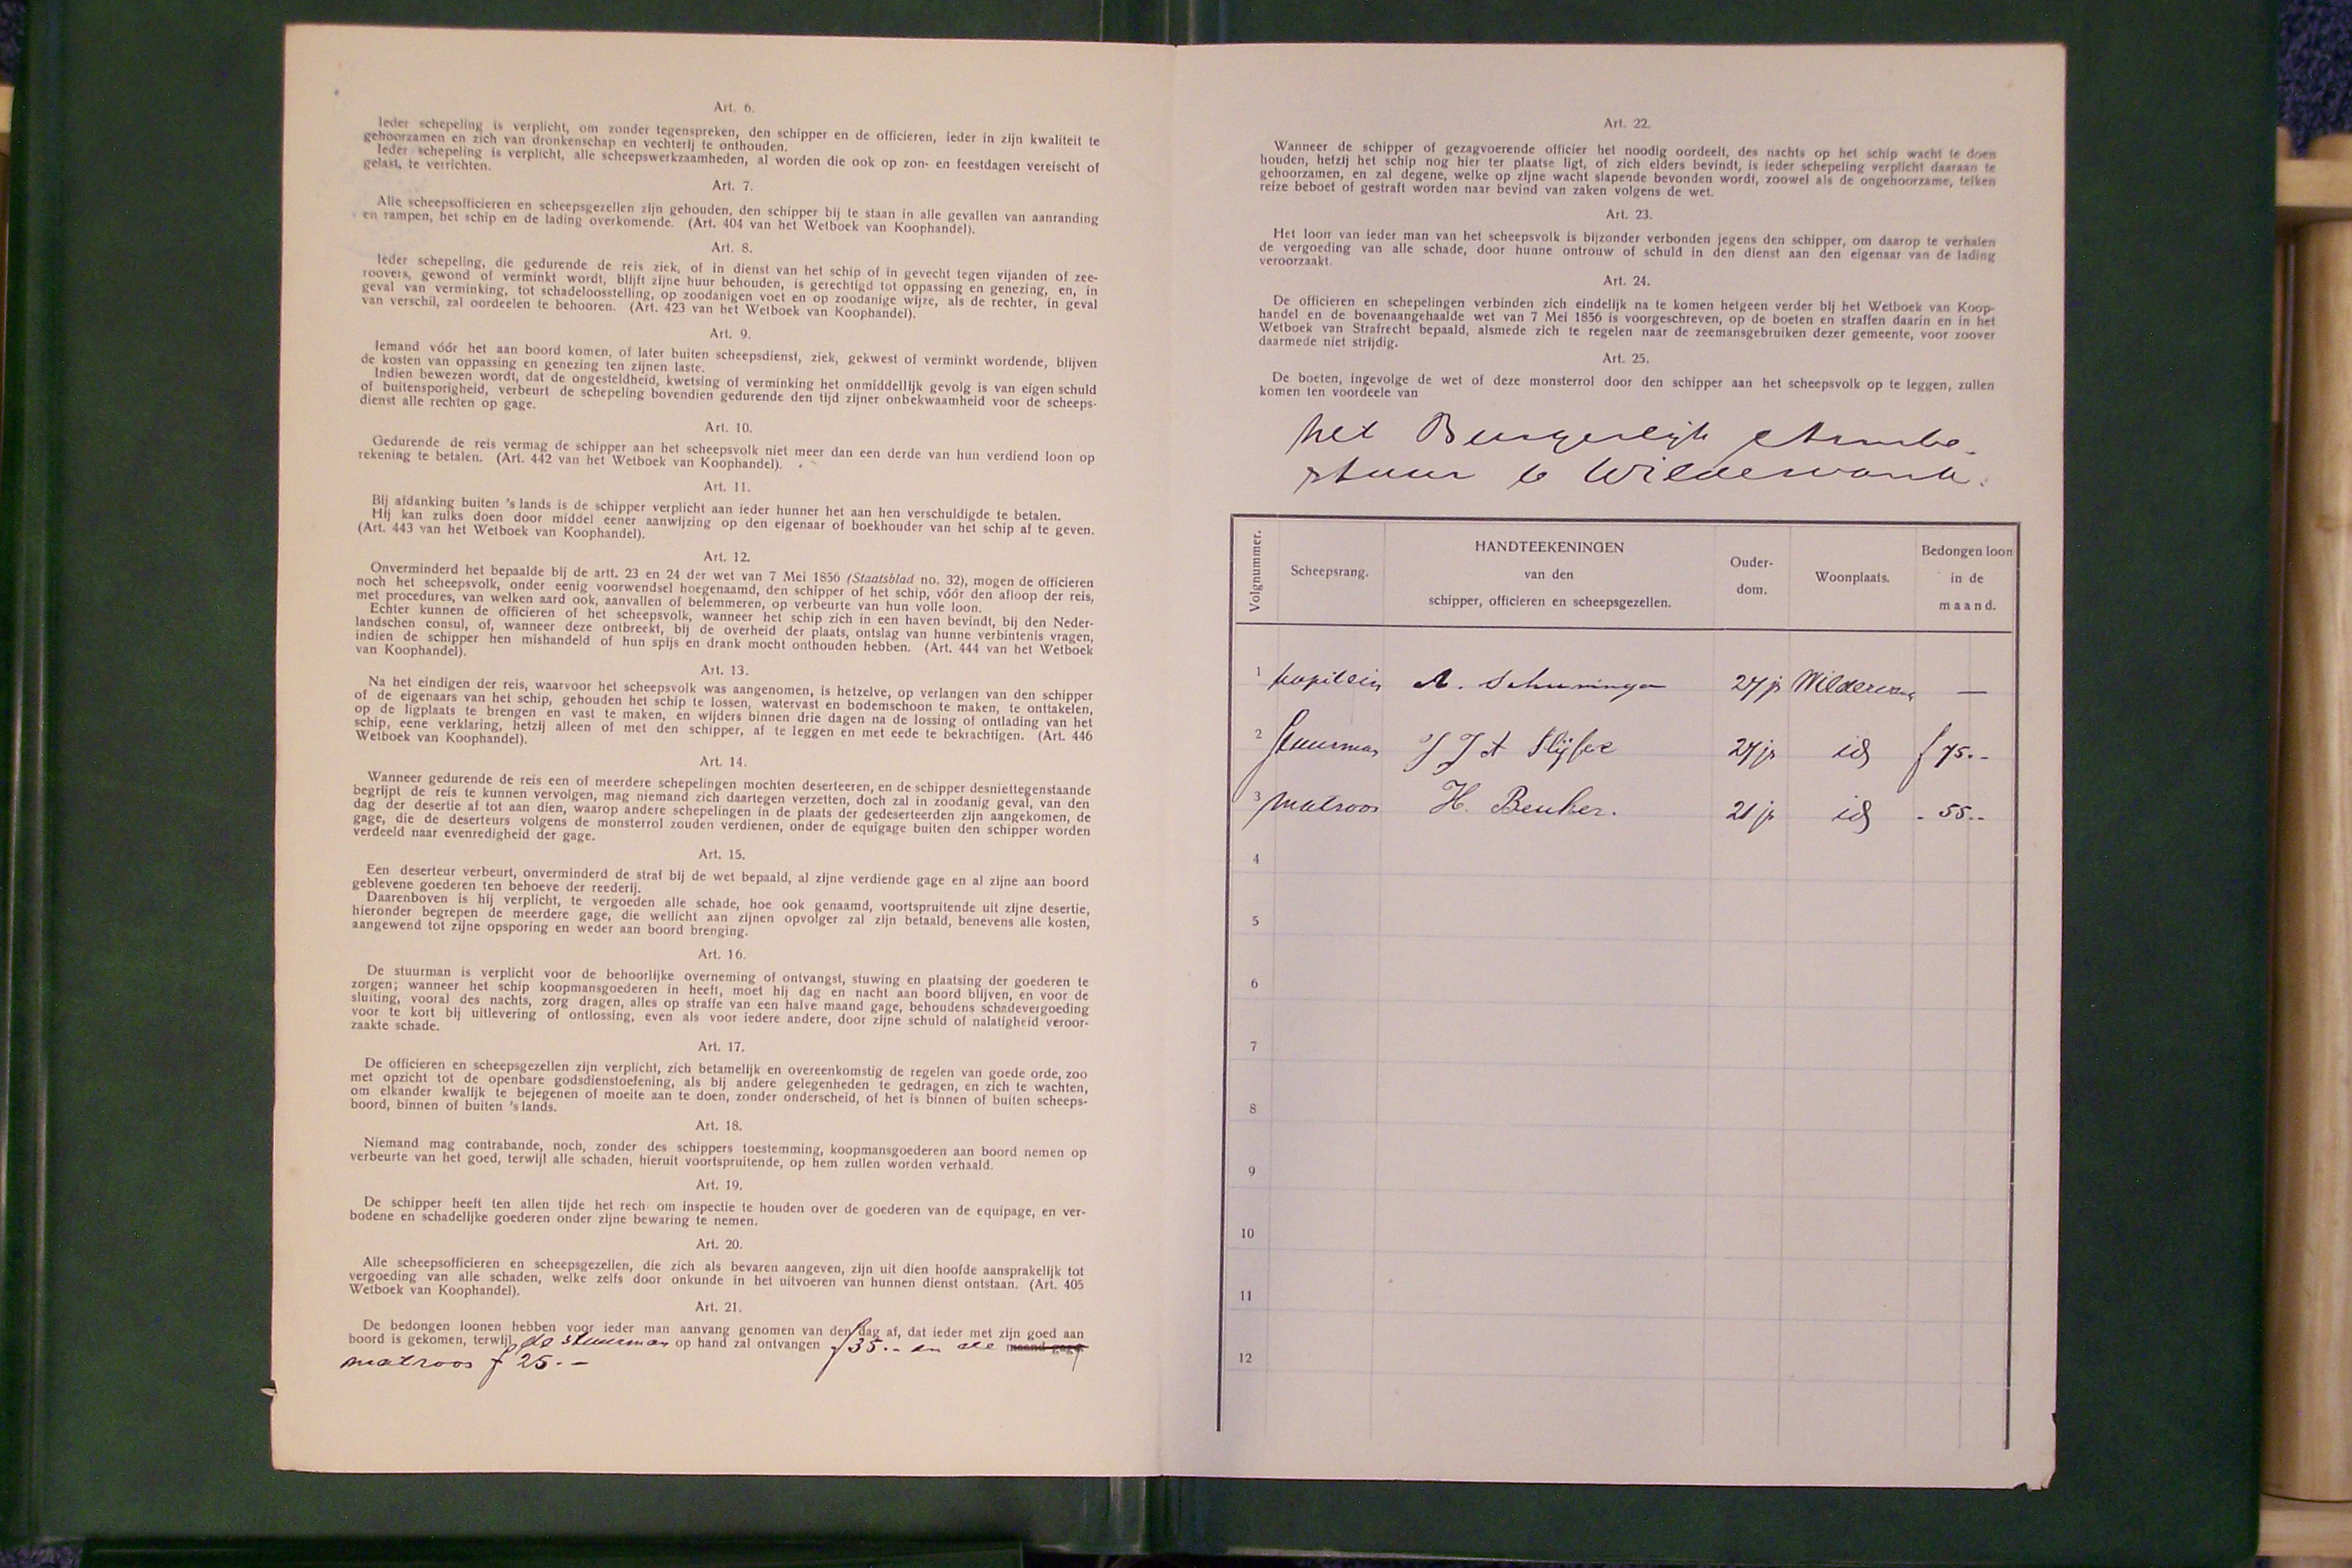 Art. 6.
Ieder schepeling is verplicht, om zonder tegenspreken, den schipper en de officieren, ieder in zijn kwaliteit te
gehoorzamen en zich van dronkenschap en vechterij te onthouden.
Ieder schepeling is verplicht, alle scheepswerkzaamheden, al worden die ook op zon- en feestdagen vereischt of
gelast, te verrichten.
Art. 7.
Alle scheepsofficieren en scheepsgezellen zijn gehouden, den schipper bij te staan in alle gevallen van aanranding
en rampen, het schip en de lading overkomende. (Art. 404 van het Wetboek van Koophandel).
Art. 8.
Ieder schepeling, die gedurende de reis ziek, of in dienst van het schip of in gevecht tegen vijanden of zee-
roovers, gewond of verminkt wordt, blijft zijne huur behouden, is gerechtigd tot oppassing en genezing, en, in
geval van verminking, tot schadeloosstelling, op zoodanigen voet en op zoodanige wijze, als de rechter, in geval
van verschil, zal oordeelen te behooren. (Art. 423 van het Wetboek van Koophandel).
Art. 9.
Iemand vóór het aan boord komen, of later buiten scheepsdienst, ziek, gekwest of verminkt wordende, blijven
de kosten van oppassing en genezing ten zijnen laste.
Indien bewezen wordt, dat de ongesteldheid, kwetsing of verminking het onmiddellijk gevolg is van eigen schuld
of buitensporigheid, verbeurt de schepeling bovendien gedurende den tijd zijner onbekwaamheid voor de scheeps-
dienst alle rechten op gage.
Art. 10.
Gedurende de reis vermag de schipper aan het scheepsvolk niet meer dan een derde van hun verdiend loon op
rekening te betalen. (Art. 442 van het Wetboek van Koophandel).
Art. 11.
Bij afdanking buiten 's lands is de schipper verplicht aan ieder hunner het aan hen verschuldigde te betalen.
Hij kan zulks doen door middel eener aanwijzing op den eigenaar of boekhouder van het schip af te geven.
(Art. 443 van het Wetboek van Koophandel).
Art. 12.
Onverminderd het bepaalde bij de artt. 23 en 24 der wet van 7 Mei 1856 (Staatsblad no. 32), mogen de officieren
noch het scheepsvolk, onder eenig voorwendsel hoegenaamd, den schipper of het schip, vóór den afloop der reis,
met procedures, van welken aard ook, aanvallen of belemmeren, op verbeurte van hun volle loon.
Echter kunnen de officieren of het scheepsvolk, wanneer het schip zich in een haven bevindt, bij den Neder-
landschen consul, of, wanneer deze ontbreekt, bij de overheid der plaats, ontslag van hunne verbintenis vragen,
indien de schipper hen mishandeld of hun spijs en drank mocht onthouden hebben. (Art. 444 van het Wetboek
van Koophandel).
Art. 13.
Na het eindigen der reis, waarvoor het scheepsvolk was aangenomen, is hetzelve, op verlangen van den schipper
of de eigenaars van het schip, gehouden het schip te lossen, watervast en bodemschoon te maken, te onttakelen,
op de ligplaats te brengen en vast te maken, en wijders binnen drie dagen na de lossing of ontlading van het
schip, eene verklaring, hetzij alleen of met den schipper, af te leggen en met eede te bekrachtigen. (Art. 446
Wetboek van Koophandel).
Art. 14.
Wanneer gedurende de reis een of meerdere schepelingen mochten deserteeren, en de schipper desniettegenstaande
begrijpt de reis te kunnen vervolgen, mag niemand zich daartegen verzetten, doch zal in zoodanig geval, van den
dag der desertie af tot aan dien, waarop andere schepelingen in de plaats der gedeserteerden zijn aangekomen, de
gage, die de deserteurs volgens de monsterrol zouden verdienen, onder de equigage buiten den schipper worden
verdeeld naar evenredigheid der gage.
Art. 15.
Een deserteur verbeurt, onverminderd de straf bij de wet bepaald, al zijne verdiende gage en al zijne aan boord
geblevene goederen ten behoeve der reederij.
Daarenboven is hij verplicht, te vergoeden alle schade, hoe ook genaamd, voortspruitende uit zijne desertie,
hieronder begrepen de meerdere gage, die wellicht aan zijnen opvolger zal zijn betaald, benevens alle kosten,
aangewend tot zijne opsporing en weder aan boord brenging.
Art. 16.
De stuurman is verplicht voor de behoorlijke overneming of ontvangst, stuwing en plaatsing der goederen te
zorgen; wanneer het schip koopmansgoederen in heeft, moet hij dag en nacht aan boord blijven, en voor de
sluiting, vooral des nachts, zorg dragen, alles op straffe van een halve maand gage, behoudens schadevergoeding
voor te kort bij uitlevering of ontlossing, even als voor iedere andere, door zijne schuld of nalatigheid veroor-
zaakte schade.
Art. 17.
De officieren en scheepsgezellen zijn verplicht, zich betamelijk en overeenkomstig de regelen van goede orde, zoo
met opzicht tot de openbare godsdienstoefening, als bij andere gelegenheden te gedragen, en zich te wachten,
om elkander kwalijk te bejegenen of moeite aan te doen, zonder onderscheid, of het is binnen of buiten scheeps-
boord, binnen of buiten 's lands.
Art. 18.
Niemand mag contrabande, noch, zonder des schippers toestemming, koopmansgoederen aan boord nemen op
verbeurte van het goed, terwijl alle schaden, hieruit voortspruitende, op hem zullen worden verhaald.
Art. 19.
De schipper heeft ten allen tijde het rech om inspectie te houden over de goederen van de equipage, en ver-
bodene en schadelijke goederen onder zijne bewaring te nemen.
Art. 20.
Alle scheepsofficieren en scheepsgezellen, die zich als bevaren aangeven, zijn uit dien hoofde aansprakelijk tot
vergoeding van alle schaden, welke zelfs door onkunde in het uitvoeren van hunnen dienst ontstaan. (Art. 405
Wetboek van Koophandel).
Art. 21.
De bedongen loonen hebben voor ieder man aanvang genomen van den dag af, dat ieder met zijn goed aan
boord is gekomen, terwijl de stuurman op hand zal ontvangen f 35.- en de maand gage
matroos f 25.-
Art. 22.
Wanneer de schipper of gezagvoerende officier het noodig oordeelt, des nachts op het schip wacht te doen
houden, hetzij het schip nog hier ter plaatse ligt, of zich elders bevindt, is ieder schepeling verplicht daaraan te
gehoorzamen, en zal degene, welke op zijne wacht slapende bevonden wordt, zoowel als de ongehoorzame, telken
reize beboet of gestraft worden naar bevind van zaken volgens de wet.
Art. 23.
Het loon van ieder man van het scheepsvolk is bijzonder verbonden jegens den schipper, om daarop te verhalen
de vergoeding van alle schade, door hunne ontrouw of schuld in den dienst aan den eigenaar van de lading
veroorzaakt.
Art. 24.
De officieren en schepelingen verbinden zich eindelijk na te komen hetgeen verder bij het Wetboek van Koop-
handel en de bovenaangehaalde wet van 7 Mei 1856 is voorgeschreven, op de boeten en straffen daarin en in het
Wetboek van Strafrecht bepaald, alsmede zich te regelen naar de zeemansgebruiken dezer gemeente, voor zoover
daarmede niet strijdig.
Art. 25.
De boeten, ingevolge de wet of deze monsterrol door den schipper aan het scheepsvolk op te leggen, zullen
komen ten voordeele van
het Burgerlijk Armbe-
stuur te Wildervank.
Volgnummer. Scheepsrang. HANDTEEKENINGEN van den schipper, officieren en scheepsgezellen. Ouder-dom. Woonplaats. Bedongen loon in de maand.
1 kapitein A. Schuringa 27 jr Wildervank —
2 stuurman 27 jr id f 75.-
3 matroos H. Beuker. 21 jr id - 55.-
4
5
6
7
8
9
10
11
12